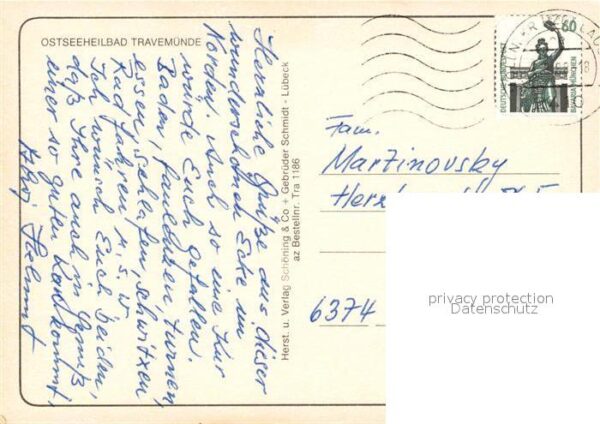 OSTSEEHEILBAD TRAVEMÜNDE
Herzliche Grüße aus dieser
wunderschönen Ecke im
Norden. Auch so eine Kur
würde Euch gefallen.
Baden, faulenzen, turnen,
essen, schlafen, schwitzen,
Rad fahren u.s.w.
Ich wünsch Euch beiden,
daß Ihr auch in Genuß
einer so guten Kur kommt.
Helmut
Herst. u. Verlag Schöning & Co + Gebrüder Schmidt - Lübeck
az Bestellnr. Tra 1186
60
DEUTSCHE BUNDESPOST
BAVARIA MÜNCHEN
Fam.
Martinovsky
6374
privacy protection
Datenschutz